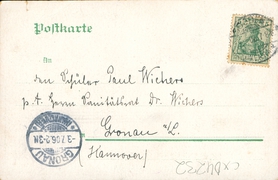 Postkarte
An
den Schüler Paul Wichers
p. Adr. Herrn Sanitätsrat Dr. Wichers
Gronau a/L.
(Hannover)
GRONAU
-3.7.06.2-3N
(HANNOVER)